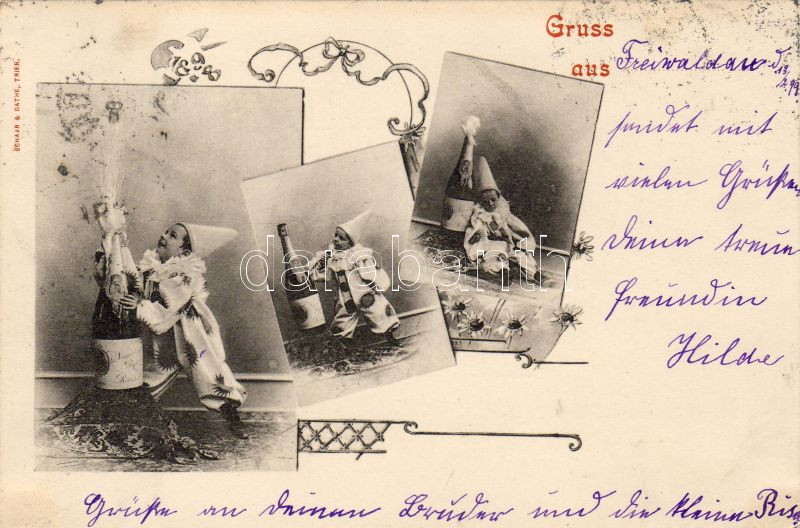 Gruss
aus Freiwaldau d. 13.
sendet mit
vielen Grüßen
deine treue
Freundin
Hilde
Grüße an deinen Bruder und die kleine
SCHAAR & DATHE, TRIER.
darabanth